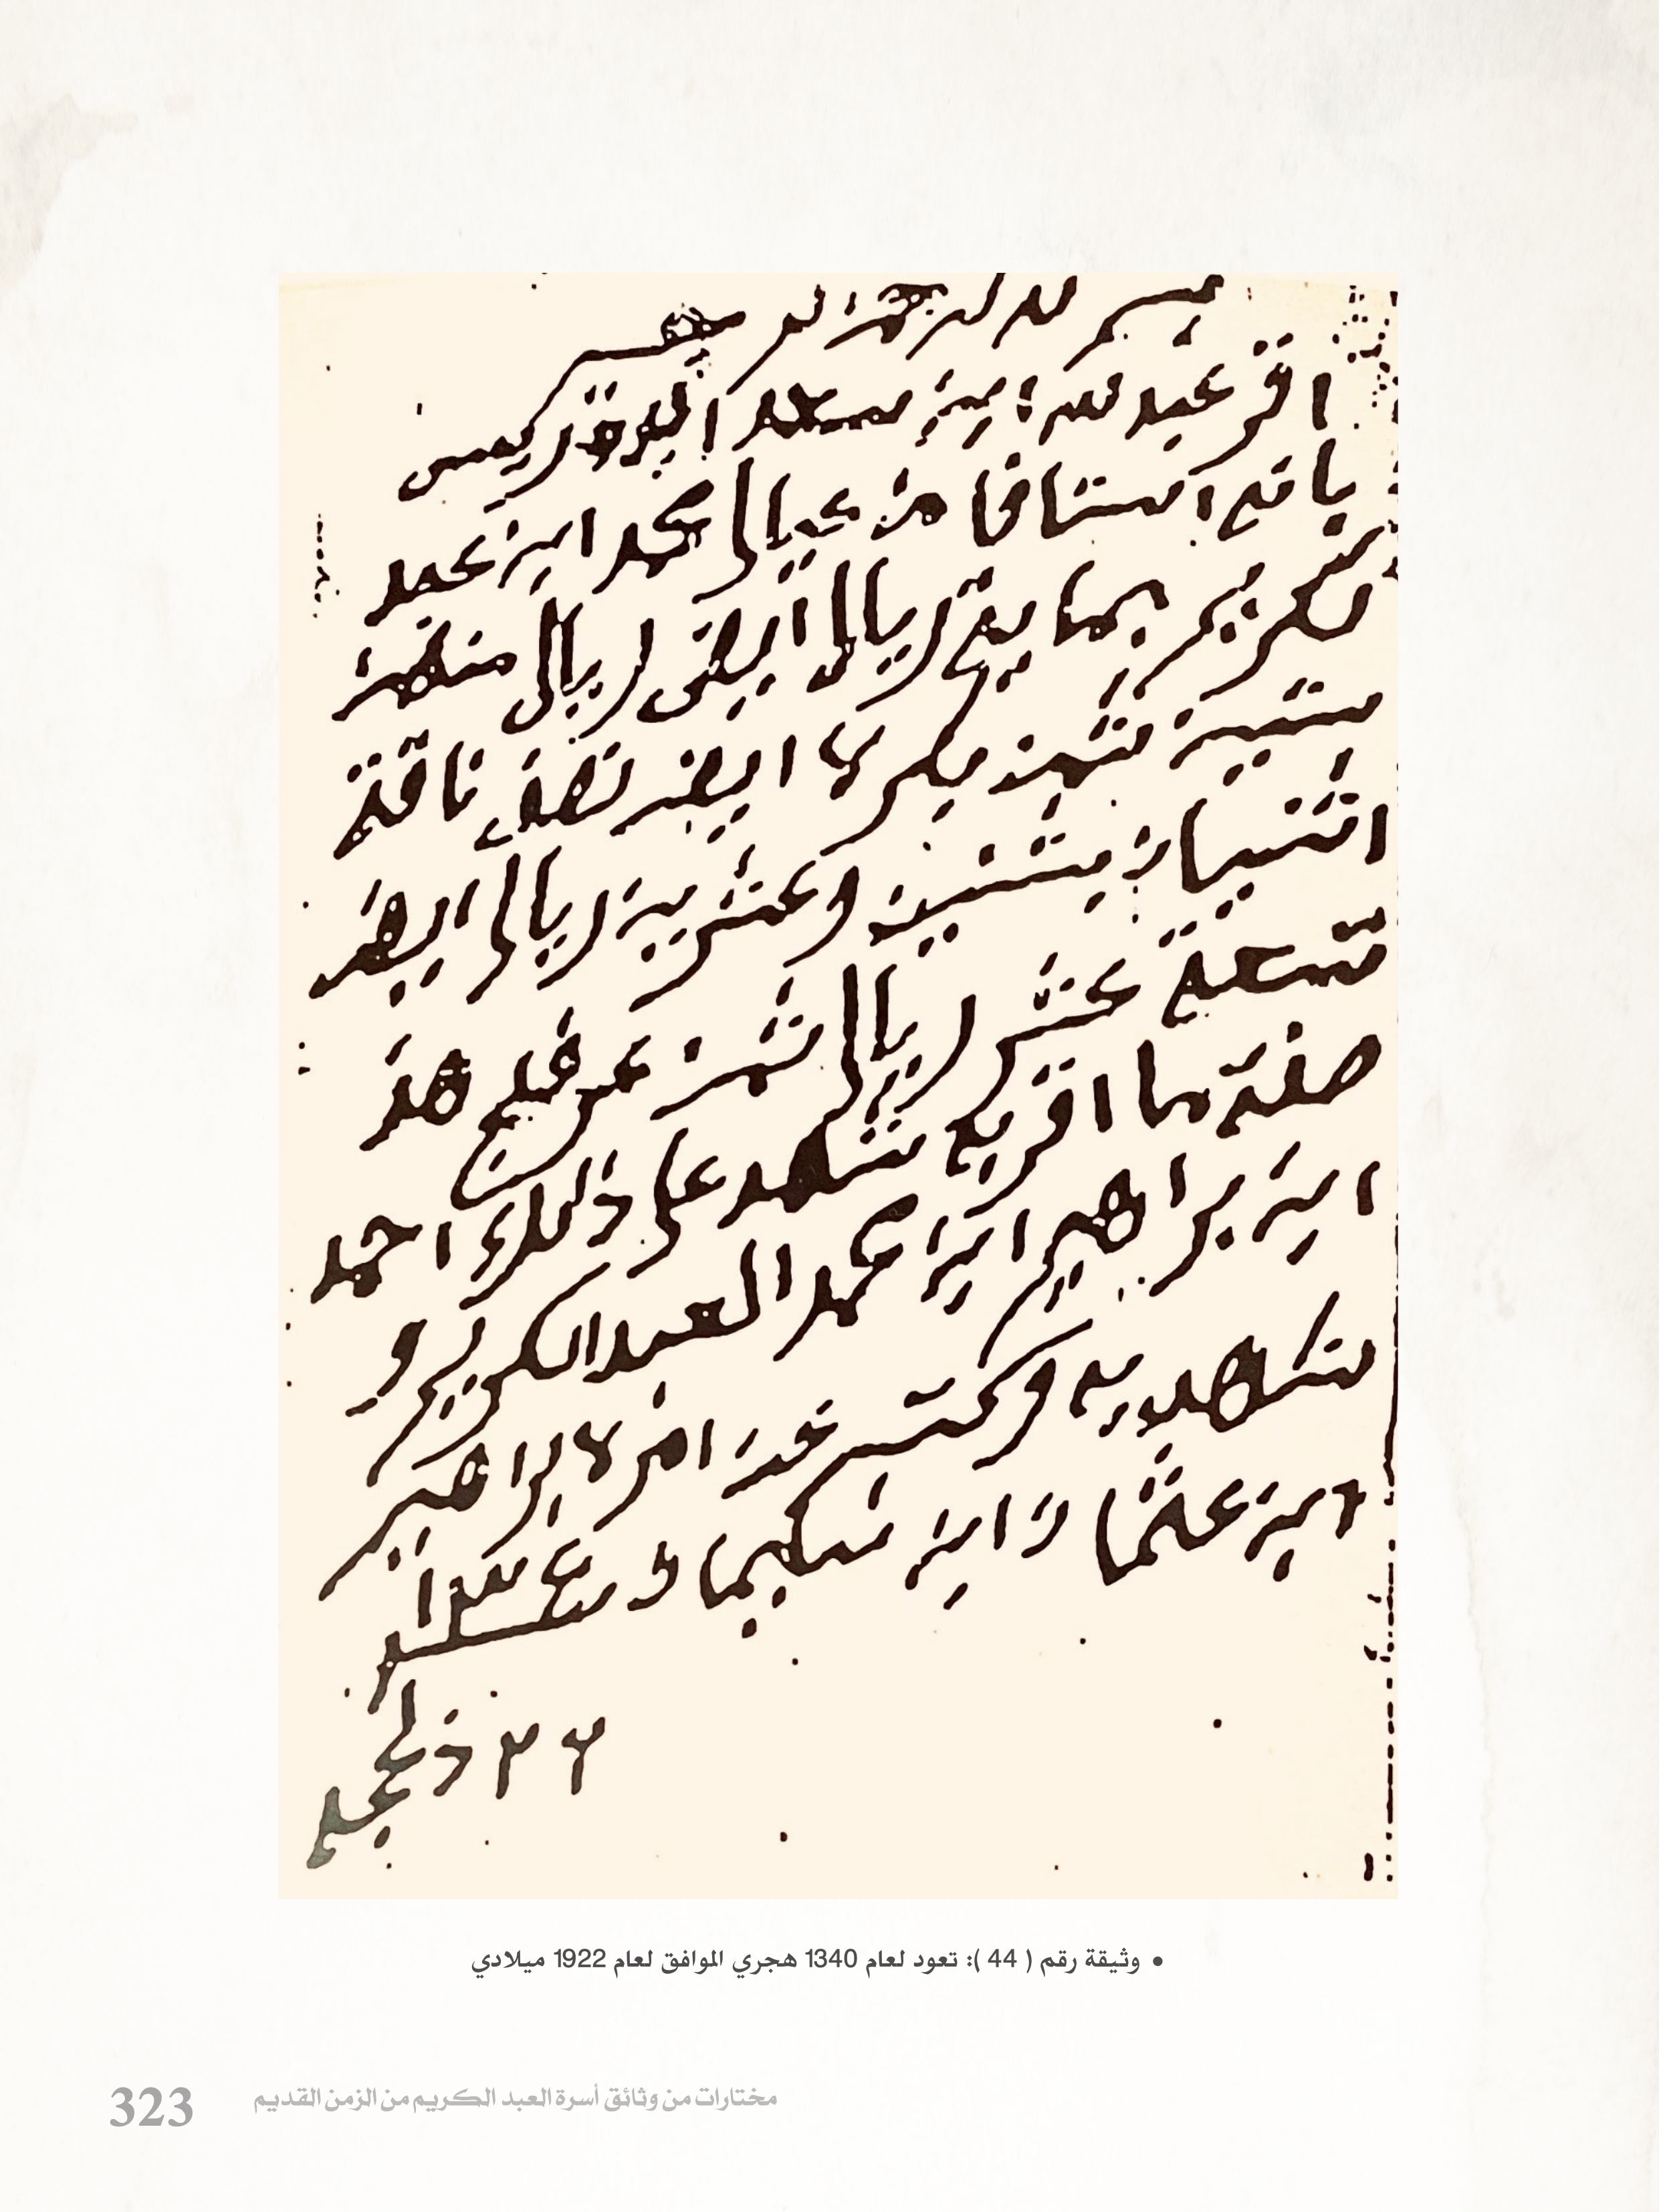 بسم الله الرحمن الرحيم
اقر عبدالله ابن سعد
بانه استافا من عيال محمد ابن عبد
الكريم بما يه ريال ايضن ريال منهن
ستين ثمن بكره ايضن نصف ناقته
اثنيان بثنين وعشرين ريال ايضن
تسعة عشر ريال ثمن هذ
صفة ما اقر به شهد على ذلك احمد
ابن براهيم ابن محمد العبدالكريم و
شهد به وكتبه عن امره براهيم
ابن عثمان ابن سليمان
٢٣ ذالحجه
• وثيقة رقم ( 44 ): تعود لعام 1340 هجري الموافق لعام 1922 ميلادي
مختارات من وثائق أسرة العبد الكريم من الزمن القديم 323